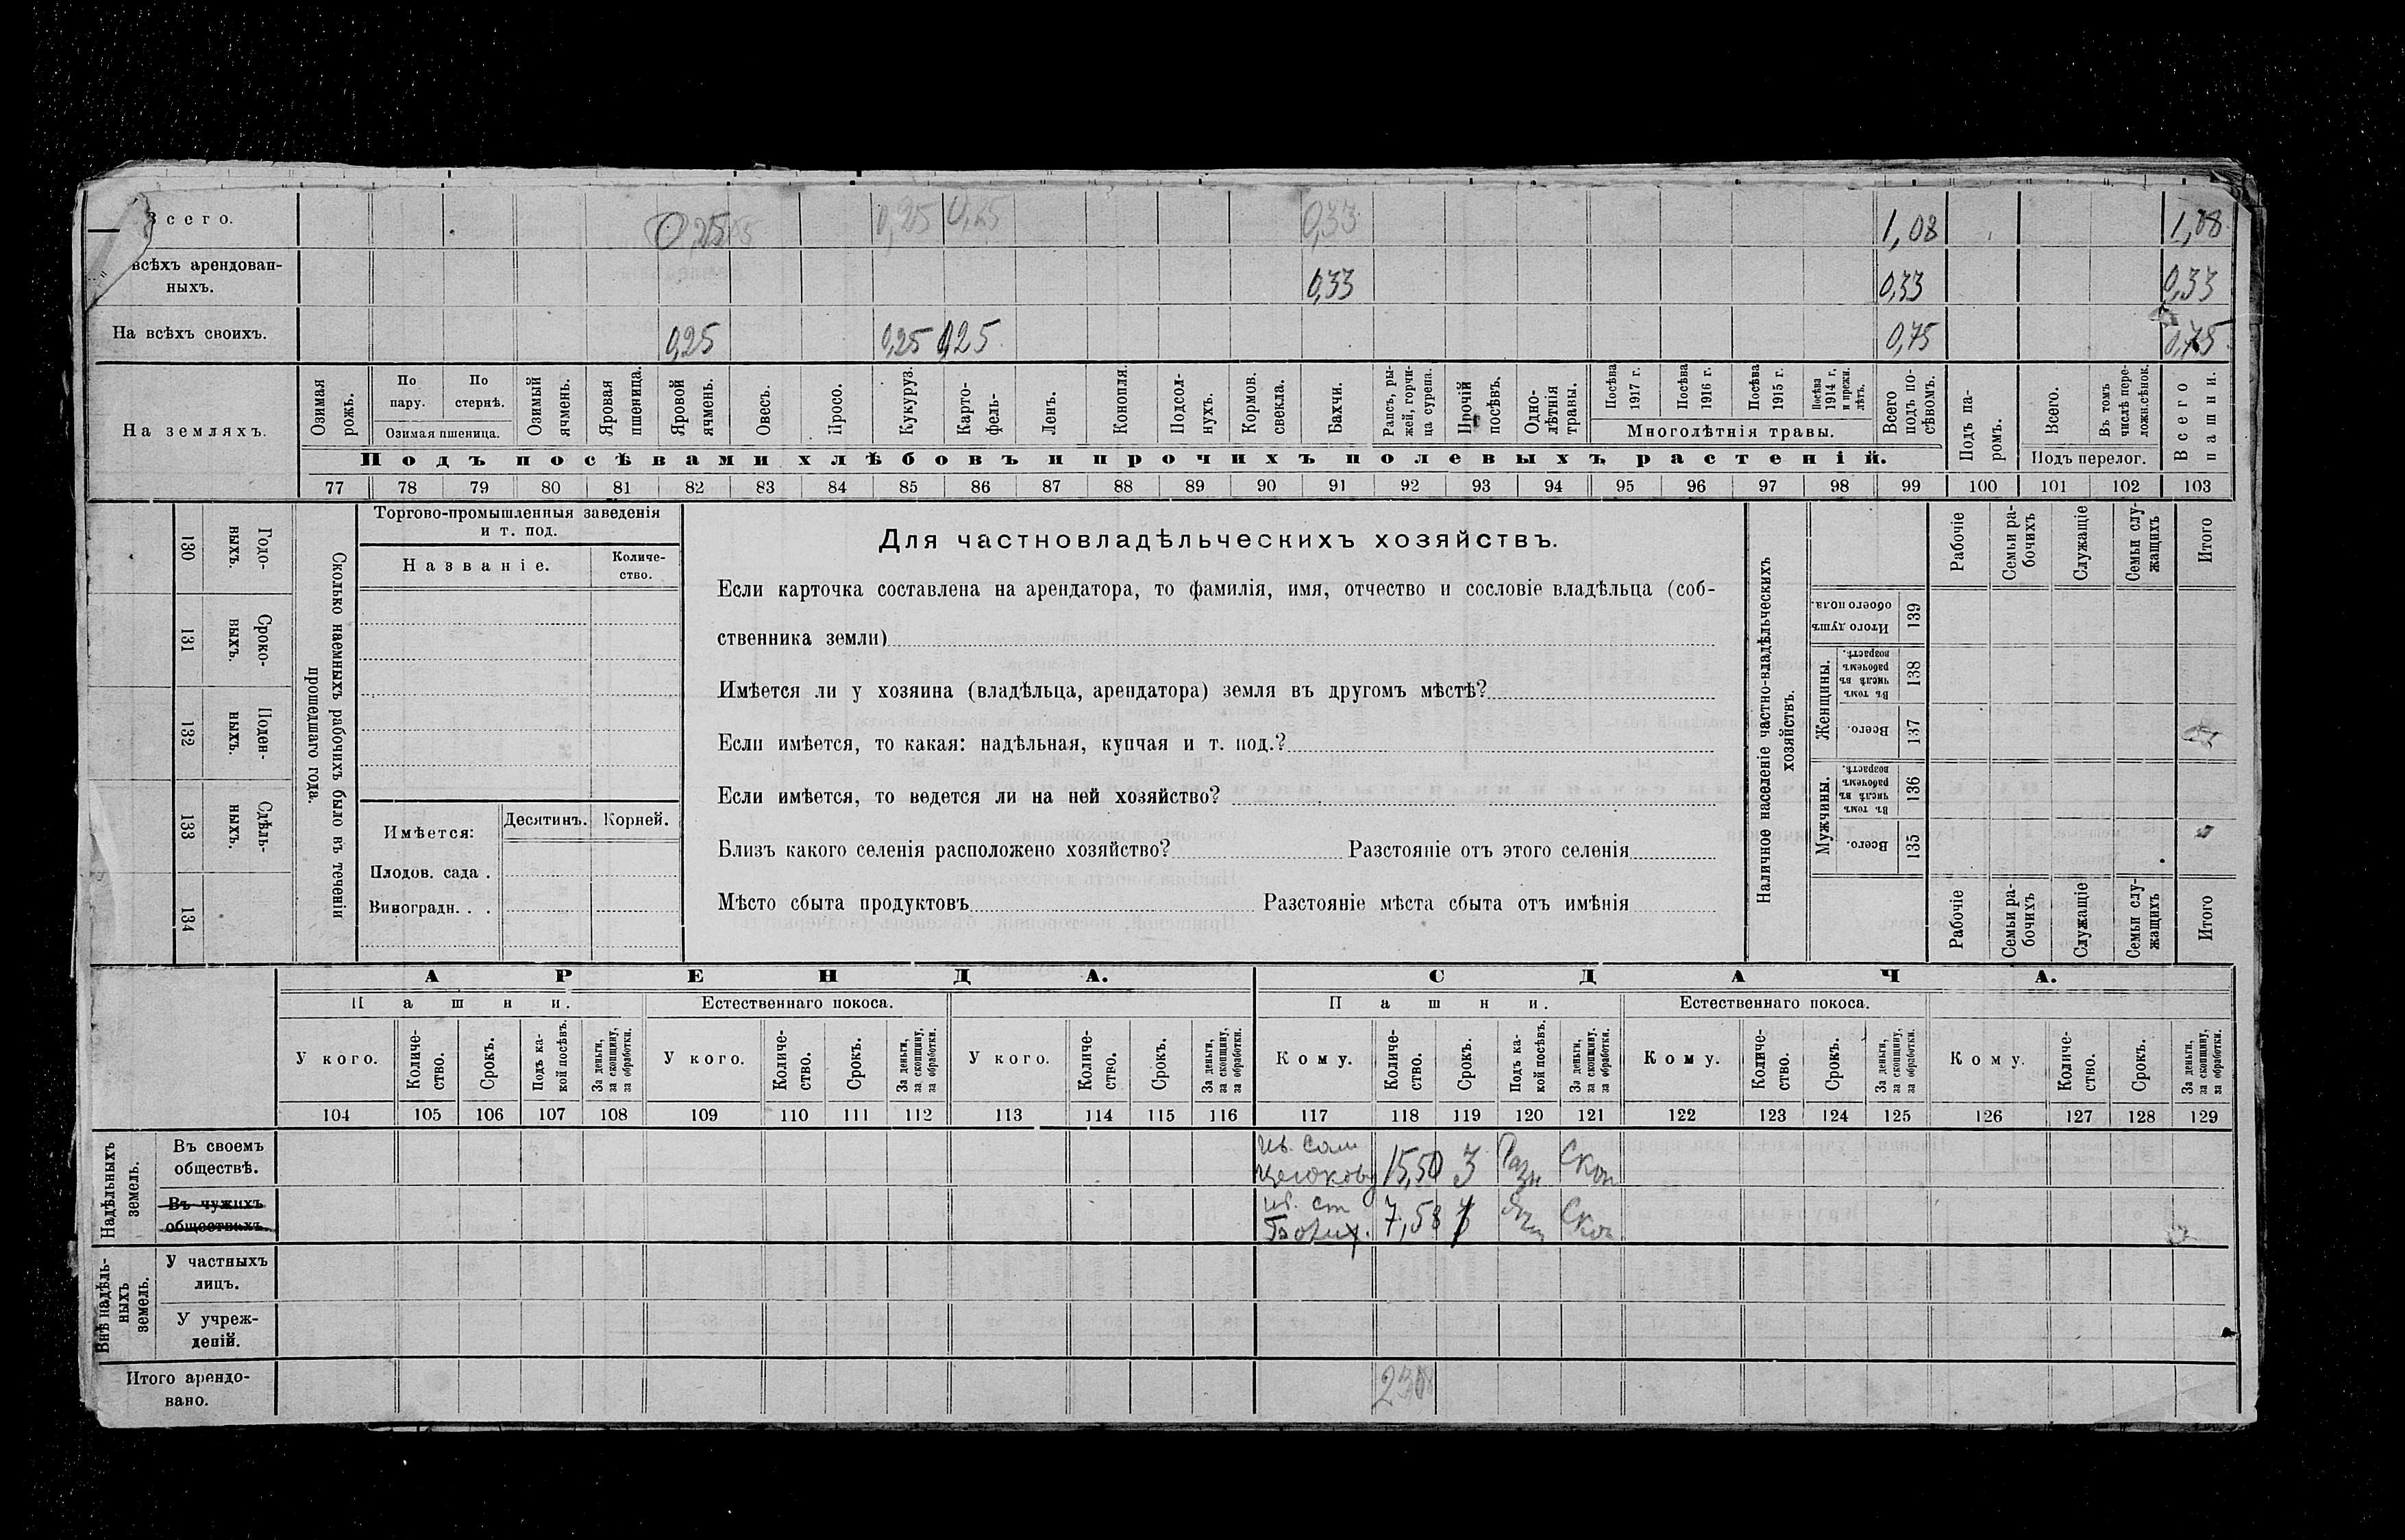 Всего. 0,25 0,25 0,25 0,33 1,08 1,08
всѣхъ арендован-
ныхъ. 0,33 0,33 0,33
На всѣхъ своихъ. 0,25 0,25 0,25 0,75 0,75
На земляхъ.
Озимая рожь.
По пару.
По стернѣ.
Озимая пшеница.
Озимый ячмень.
Яровая пшеница.
Яровой ячмень.
Овесъ.
Просо.
Кукуруз.
Карто-
фель-
Ленъ.
Конопля.
Подсол-
нухъ.
Кормов.
свекла.
Бахчи.
Рапсъ, ры-
жей, горчи-
ца сурепа.
Прочій
посѣвъ.
Одно-
лѣтнія
травы.
Посѣва
1917 г.
Посѣва
1916 г.
Посѣва
1915 г.
Посѣва
1914 г.
и прежн.
лѣтъ.
Многолѣтнія травы.
Всего
подъ по-
сѣвомъ.
Подъ па-
ромъ.
Всего.
Въ томъ
числѣ пере-
ложн.сѣнок.
Подъ перелог.
Всего
пашни.
Подъ посѣвами хлѣбовъ и прочихъ полевыхъ растеній.
77 78 79 80 81 82 83 84 85 86 87 88 89 90 91 92 93 94 95 96 97 98 99 100 101 102 103
130 Годо-
ныхъ.
131 Сроко-
ныхъ.
132 Поден-
ныхъ.
133 Сдѣль-
ныхъ.
134
Сколько наемныхъ рабочихъ было въ теченіи
прошедшаго года.
Торгово-промышленныя заведенія
и т. под.
Названіе.
Количе-
ство.
Имѣется:
Десятинъ. Корней.
Плодов. сада .
Виноградн. . .
Для частновладѣльческихъ хозяйствъ.
Если карточка составлена на арендатора, то фамилія, имя, отчество и сословіе владѣльца (соб-
ственника земли)
Имѣется ли у хозяина (владѣльца, арендатора) земля въ другомъ мѣстѣ?
Если имѣется, то какая: надѣльная, купчая и т. под.?
Если имѣется, то ведется ли на ней хозяйство?
Близъ какого селенія расположено хозяйство? Разстояніе отъ этого селенія
Мѣсто сбыта продуктовъ Разстояніе мѣста сбыта отъ имѣнія
Наличное населеніе частно-владѣльческихъ
хозяйствъ.
Рабочіе
Семьи ра-
бочихъ
Служащіе
Семьи слу-
жащихъ
Итого
Итого душъ
обоего пола.
139
Женщины.
Въ томъ
числѣ въ
рабочемъ
возрастѣ.
138
Всего.
137
Мужчины.
Въ томъ
числѣ въ
рабочемъ
возрастѣ.
136
Всего.
135
Рабочіе
Семьи ра-
бочихъ
Служащіе
Семьи слу-
жащихъ
Итого
АРЕНДА. СДАЧА.
Пашни. Естественнаго покоса. Пашни. Естественнаго покоса.
У кого.
Количе-
ство.
Срокъ.
Подъ ка-
кой посѣвъ.
За деньги,
за скопщину,
за обработки.
У кого.
Количе-
ство.
Срокъ.
За деньги,
за скопщину,
за обработки.
У кого.
Количе-
ство.
Срокъ.
За деньги,
за скопщину,
за обработки.
Кому.
Количе-
ство.
Срокъ.
Подъ ка-
кой посѣвъ.
За деньги,
за скопщину,
за обработки.
Кому.
Количе-
ство.
Срокъ.
За деньги,
за скопщину,
за обработки.
Кому.
Количе-
ство.
Срокъ.
За деньги,
за скопщину,
за обработки.
104 105 106 107 108 109 110 111 112 113 114 115 116 117 118 119 120 121 122 123 124 125 126 127 128 129
Надѣльныхъ
земель.
Въ своемъ
обществѣ.
15,50 3 Разн Скоп
Въ чужихъ
обществахъ.
7,58 Скоп
Внѣ надѣль-
ныхъ
земель.
У частныхъ
лицъ.
У учреж-
деній.
Итого арендо-
вано.
2308